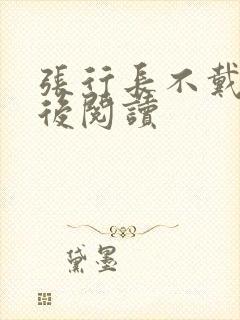 張行長不戴
後閱讀
黛墨